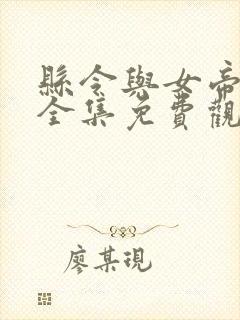 縣令與女帝
全集免費觀
廖某現